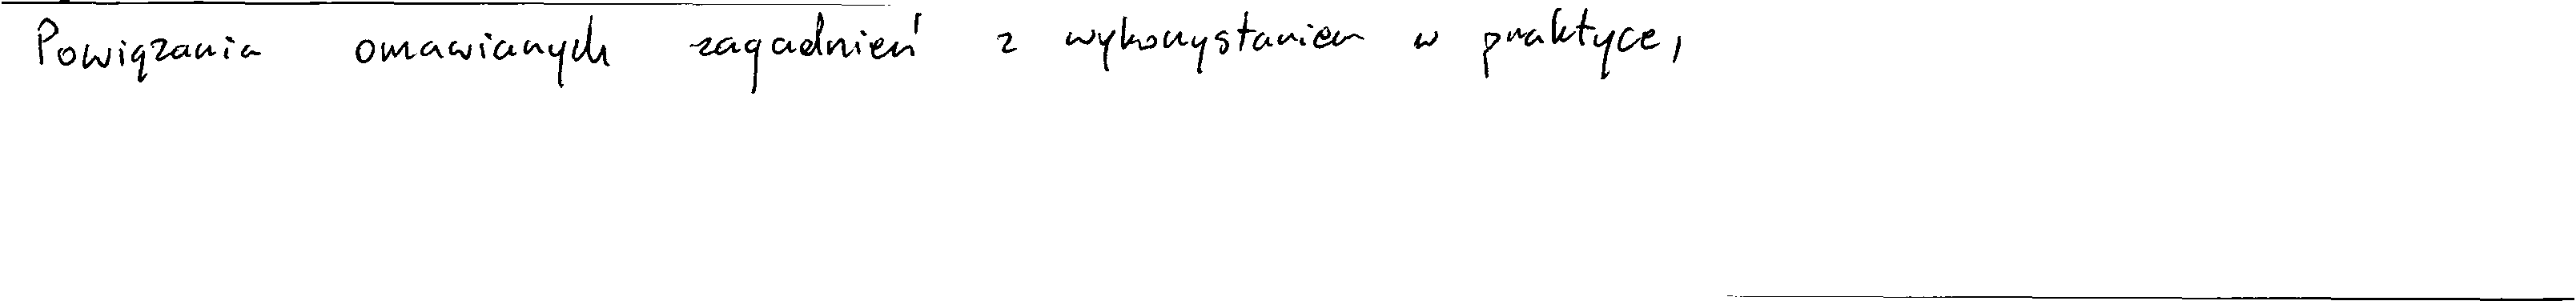 Powiązania omawianych zagadnień z wykorzystaniem w praktyce,